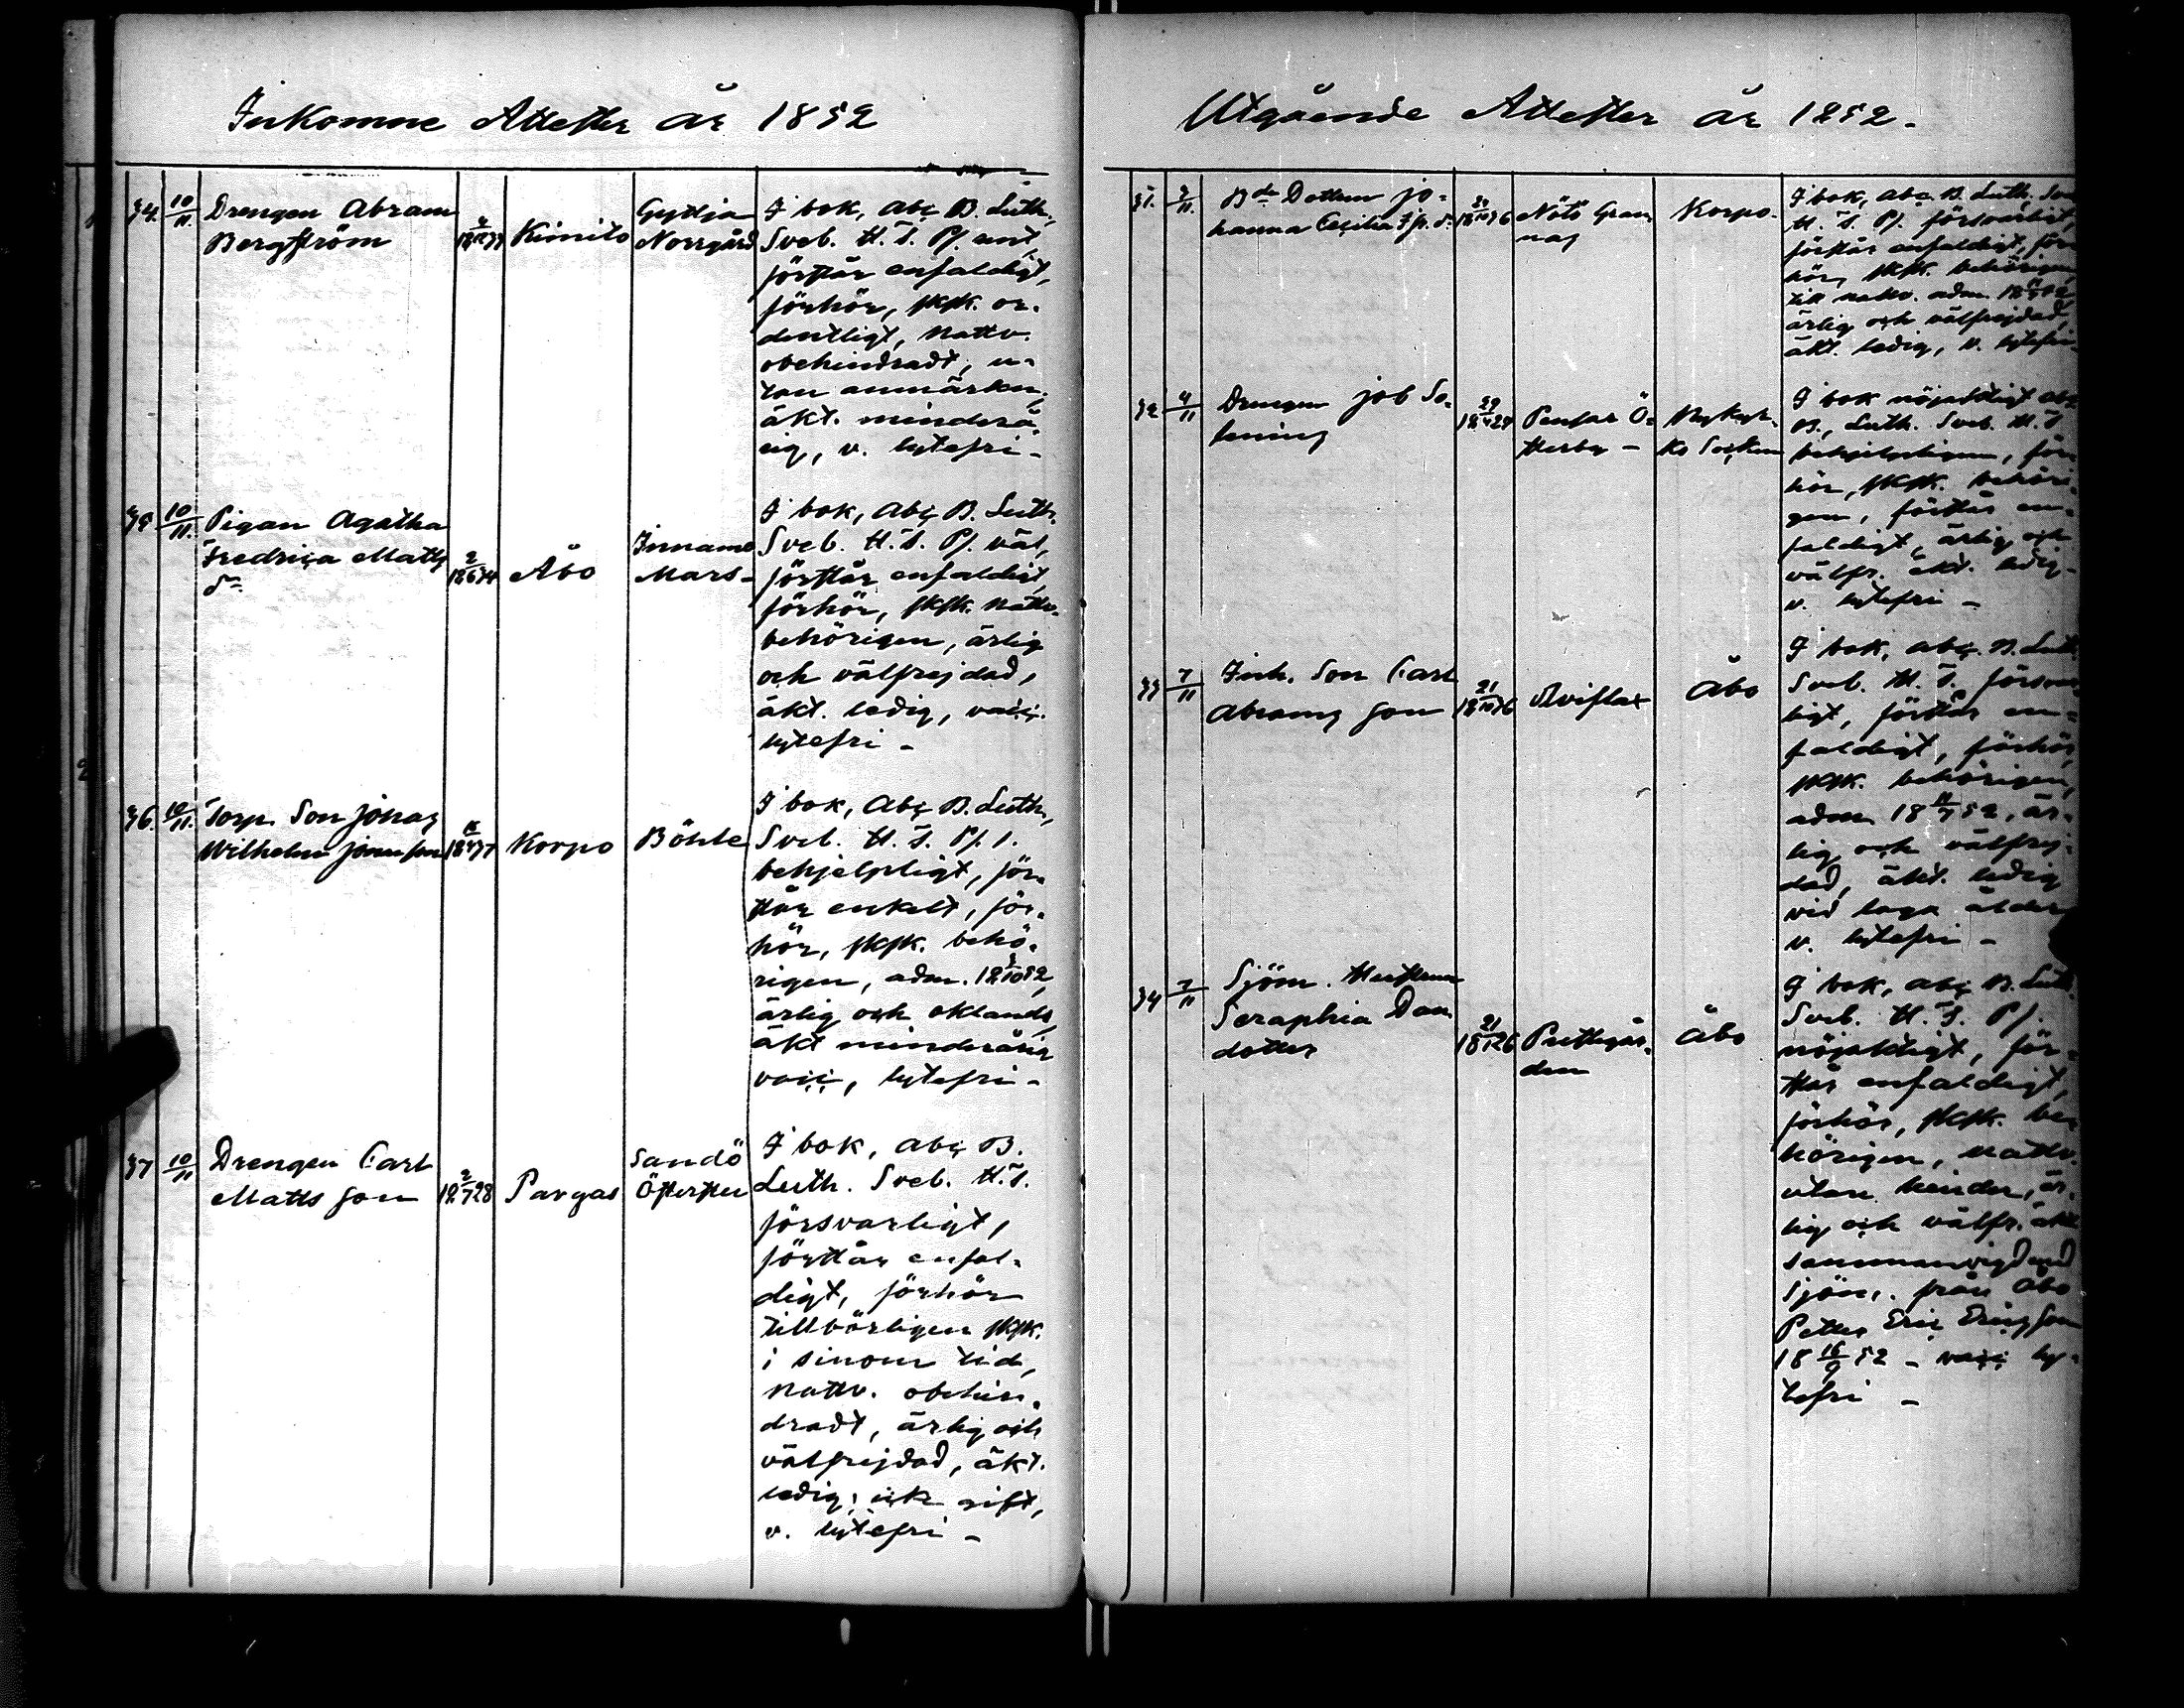 Inkomne Attester år 1852
34. 10/11. Drengen Abram
Bergström
Kimito
Gyttja
Norrgård
I bok, abc B. Luth.
Sveb. H. T. Ps. nöjt,
förstår enfaldigt,
förhör, sksk. or-
dentligt, nattv.
obehindradt, u-
tan anmärkn.
äkt. minderå-
rig, v. lytefri -
35 10/11. Pigan Agatha
Fredrica Matts
dr
18 2/6 34
Åbo
Innamo
Mars-
I bok, abc B. Luth.
Sveb. H. T. Ps. väl,
förstår enfaldigt,
förhör, sksk. nattv.
behörigen, ärlig
och välfrejdad,
äkt. ledig, vacc.
lytefri -
36. 10/11. Torp. Son Jonas
Wilhelm
Korpo
Böhle
I bok, abc B. Luth,
Sveb. H. T. Ps. s.
behjelpligt, för-
står enkelt, för-
hör, sksk. behö-
rigen, adm. 18 3/10 52,
ärlig och oklandr,
äkt minderårig
vacc, lytefri -
37 10/11 Drengen Carl
Matts son
18 2/7 28
Pargas
Sandö
Östersten
I bok, abc B.
Luth. Sveb. H. T.
försvarligt,
förstår enfal-
digt, förhör
tillbörligen sksk.
i sinom tid,
nattv. obehin-
dradt, ärlig och
välfrejdad, äkt.
ledig, ick gift,
v. lytefri -
Utgående Attester år 1852.
31. 2/11. Bde Dottren Jo-
hanna Cecilia
Nötö Gran
nas
Korpo.
I bok, abc B. Luth. Sveb
H. T. Ps. försvarligt,
förstår enfaldigt, för-
hör, sksk. behörigen
till nattv. adm.
ärlig och välfrejdad,
äkt. ledig, v. lytefri-
32 4/11 Drengen Job Sa-
lening
18 29/4 29
Pensar Ö-
sterby -
Nykyr-
ko Socken
I bok nöjaktigt abc
B., Luth. Sveb. H. T
behjelpligen, för-
hör, sksk. behöri-
gen, förstår en-
faldigt, ärlig och
välfr. äkt. ledig-
v. lytefri -
33 7/11 Inh. Son Carl
Abrams son
18 21/10 36
Åviflax
Åbo
I bok, abc. B. Luth
Sveb. H. T. försvar-
ligt, förstår en-
faldigt, förhör,
sksk. behörigen,
adm 18 11/7 52, är-
lig och välfrej-
dad, äkt. ledig
vid laga ålder
v. lytefri -
34 7/11 Sjöm. Hustrun
Seraphia Dan.
dotter
Prestgår-
den
Åbo
I bok, abc B. Luth.
Sveb. H. T. Ps.
nöjaktigt, för-
står enfaldigt,
förhör, sksk. be-
hörigen, nattv.
utan hinder, är-
lig och välfr. äkt
sammanvigd med
Sjöm. från Åbo
Petter Eric Ericsson
18 16/9 52 - vacc ly-
tefri -